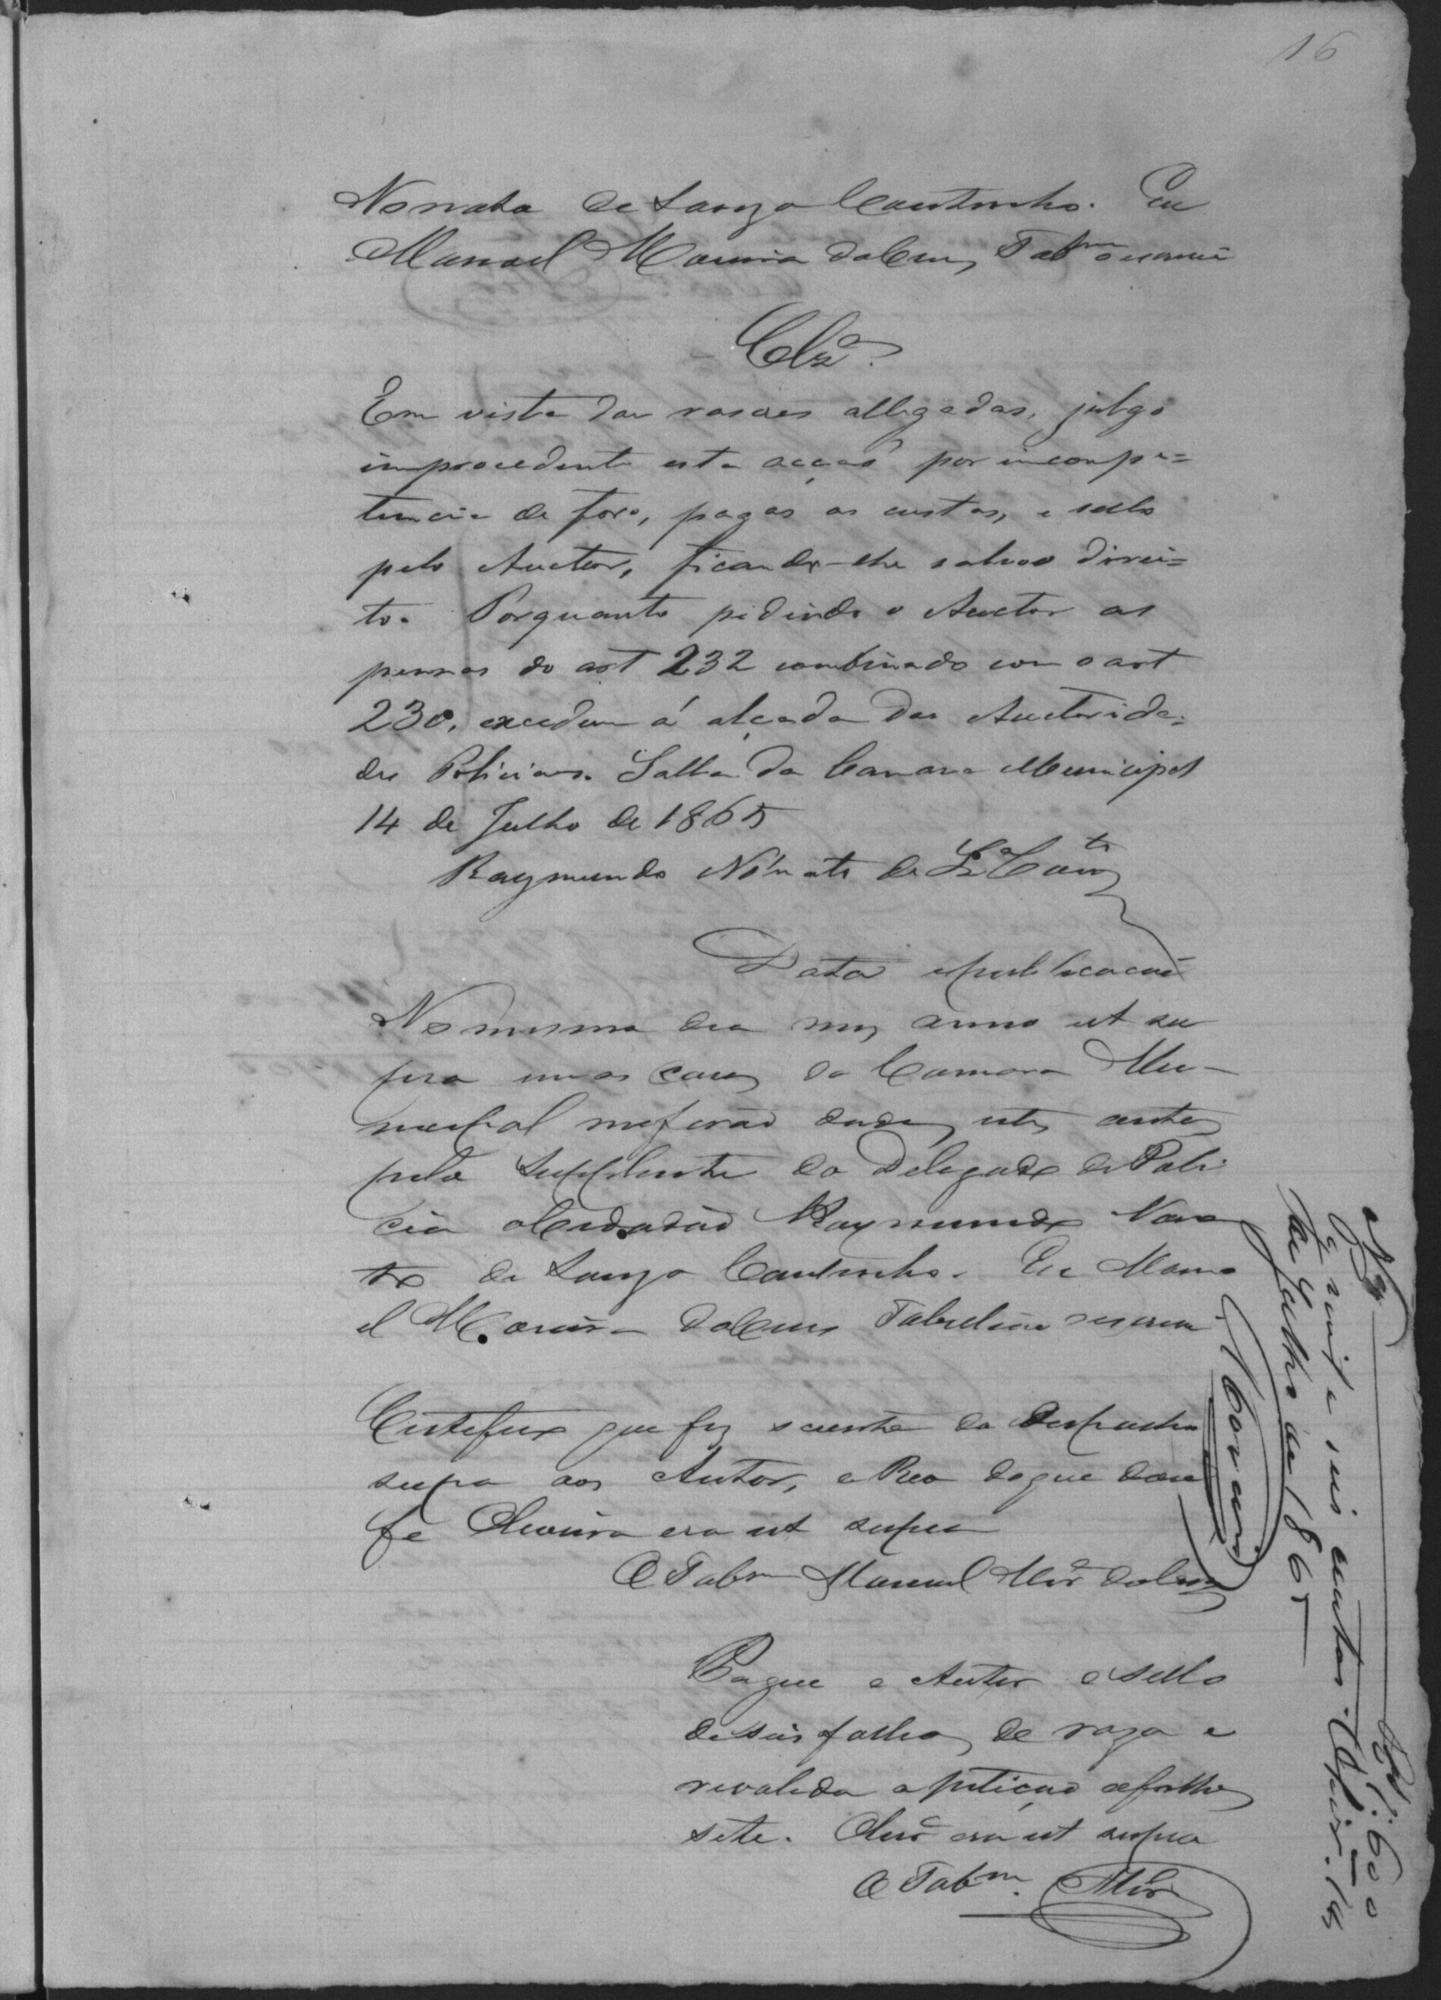 16
Nonato de Souza Coutinho. Eu
Manoel Moreira da Cruz, Tab.am o escrevi
Clz.o
Em vista das rasoes allegadas, julgo
improcedente esta acção por incompe=
tencia de foro, pagas as custas, e sello
pelo Auctor, ficando-lhe salvo o direi=
to. Porquanto pedindo o Auctor as
pennas do art 232 combinado com o art
230, excedem á alçada das Auctorida-
des Policiaes. Salla da Camara Municipal
14 de Julho de 1865
Raymundo Nonato de Sz.a Cout.o
Data e publicacaõ
No mesmo dia mez anno ut su
pra em as casas da Camara Mu-
necipal me forão dados estes autos
pelo Supplente do Delegado de Poli
cia o Cidadão Raymundo Nona
to de Souza Coutinho. Eu Mano
el Moreira da Cruz Tabelião escrevi
Certefico que fiz sciente do despacho
supra aos Autor, e Reo do que dou
fé Oliveira era ut supra
O Tab.m Manoel Mor.a da Cruz
Pague o Autor o sello
de seis folhas de raza e
revalida a petição a folhas
sete. Oliv.a era ut supra
O Tab.m Mor.a
N.o 3 1:600
Pg. mil e seis centos.
de Julho de 1865